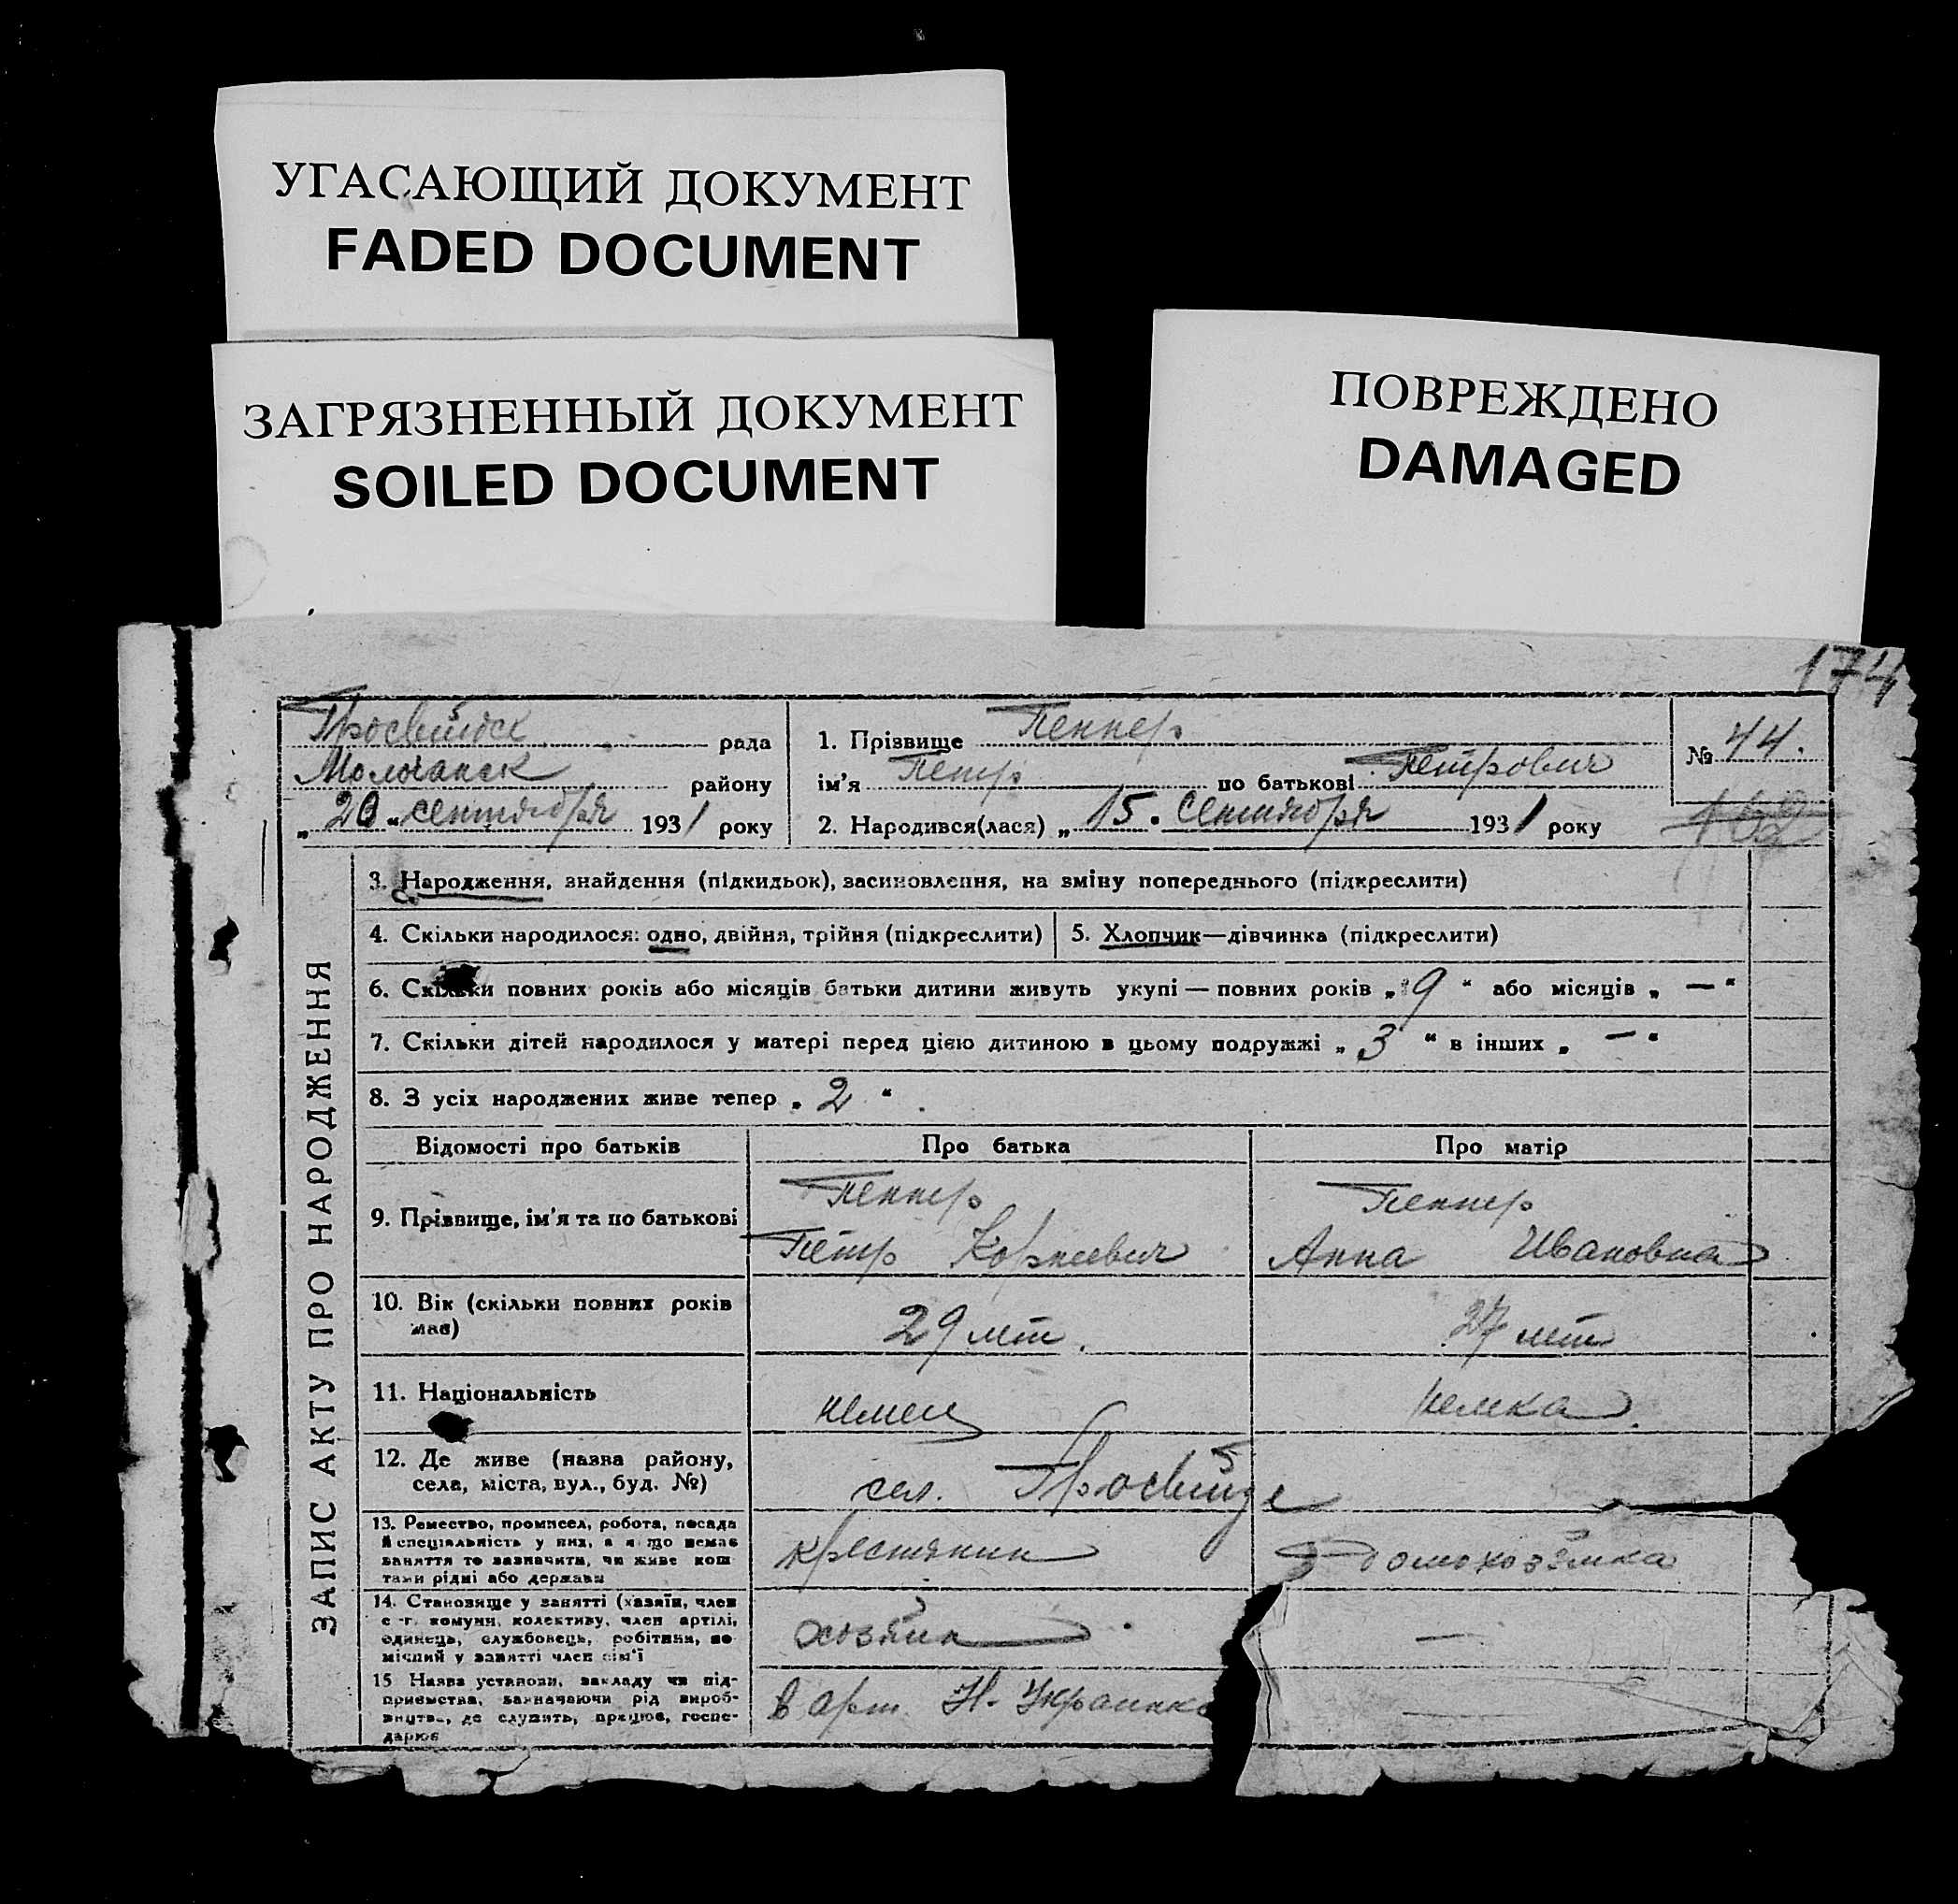 УГАСАЮЩИЙ ДОКУМЕНТ
FADED DOCUMENT
ЗАГРЯЗНЕННЫЙ ДОКУМЕНТ
SOILED DOCUMENT
ПОВРЕЖДЕНО
DAMAGED
174
рада
Молочанск району
„20“ сентября 1931 року
1. Прізвище Пеннер
ім'я Петр по батькові Петрович
2. Народився(лася) „15. Сентября 1931 року
№ 44.
162
ЗАПИС АКТУ ПРО НАРОДЖЕННЯ
3. Народження, знайдення (підкидьок), засиновлення, на зміну попереднього (підкреслити)
4. Скільки народилося: одно, двійня, трійня (підкреслити)
5. Хлопчик—дівчинка (підкреслити)
6. Скільки повних років або місяців батьки дитини живуть укупі — повних років „9“ або місяців „—“
7. Скільки дітей народилося у матері перед цією дитиною в цьому подружжі „3“ в інших „—“
8. З усіх народжених живе тепер „2“
Відомості про батьків Про батька Про матір
9. Прізвище, ім'я та по батькові
Пеннер
Петр Корнеевич
Пеннер
Анна Ивановна
10. Вік (скільки повних років
має)
29 лет.
27 лет
11. Національність
немец
немка
12. Де живе (назва району,
села, міста, вул., буд. №)
сел.
13. Ремество, промисел, робота, посада
й спеціяльність у них, а якщо немає
заняття то зазначити, чи живе кош
тами рідні або держави
крестянин
домохозяйка
14. Становище у занятті (хазяїн, член
с.-г. комуни, колективу, член артілі,
одинець, службовець, робітник, по
мічний у занятті член сім'ї
хозяин
—
15 Назва установи, закладу чи під-
приємства, зазначаючи рід вироб-
ництва, де служить, працює, госпо-
дарює
в арт. Н. Украинка